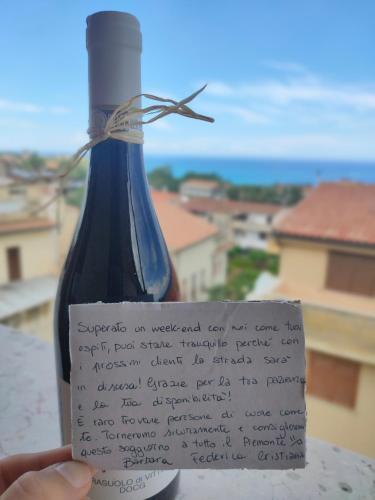 CERASUOLO di VITTORIA
Superato un week-end con noi come tuoi
ospiti, puoi stare tranquillo perché con
i prossimi clienti la strada sarà
in discesa! Grazie per la tua pazienza
e la tua disponibilità!
È raro trovare persone di cuore come
te. Torneremo sicuramente e consiglieremo
questo soggiorno a tutto il Piemonte
Barbara Federica Cristiana
SUOLO di VITT
DOCG